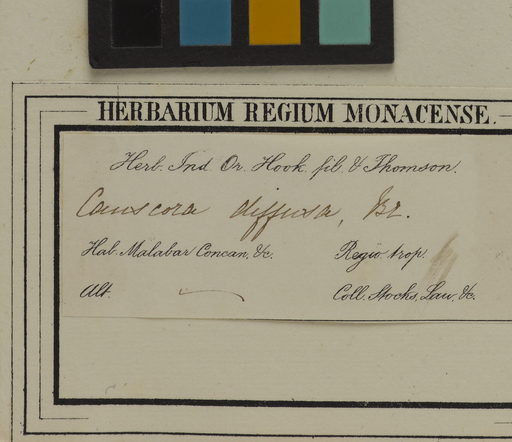 HERBARIUM REGIUM MONACENSE.
Herb. Ind. Or. Hook. fil. & Thomson.
Canscora diffusa, Br.
Hab. Malabar Concan, &c. Regio. trop.
Alt. Coll. Stocks, Law, &c.